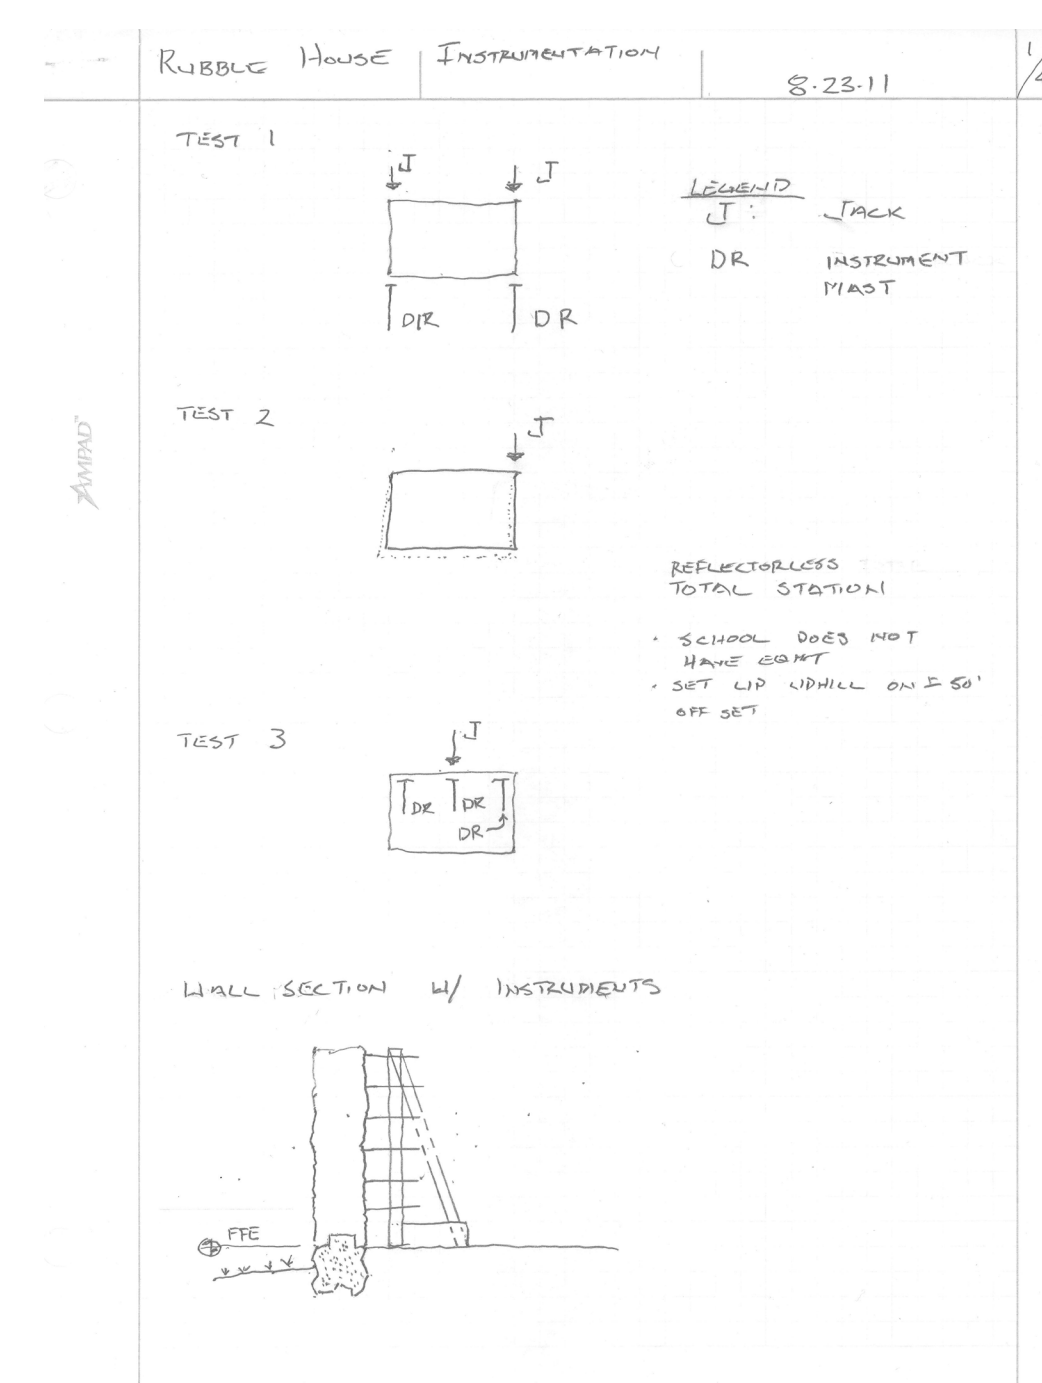 RUBBLE HOUSE
INSTRUMENTATION
8.23.11
1/
TEST 1
J
J
LEGEND
J: JACK
DR INSTRUMENT
MAST
DR
DR
TEST 2
J
AMPAD™
REFLECTORLESS
TOTAL STATION
· SCHOOL DOES NOT
HAVE EQMT
· SET UP UPHILL ON ± 50'
OFF SET
TEST 3
J
DR
DR
DR
WALL SECTION W/ INSTRUMENTS
FFE